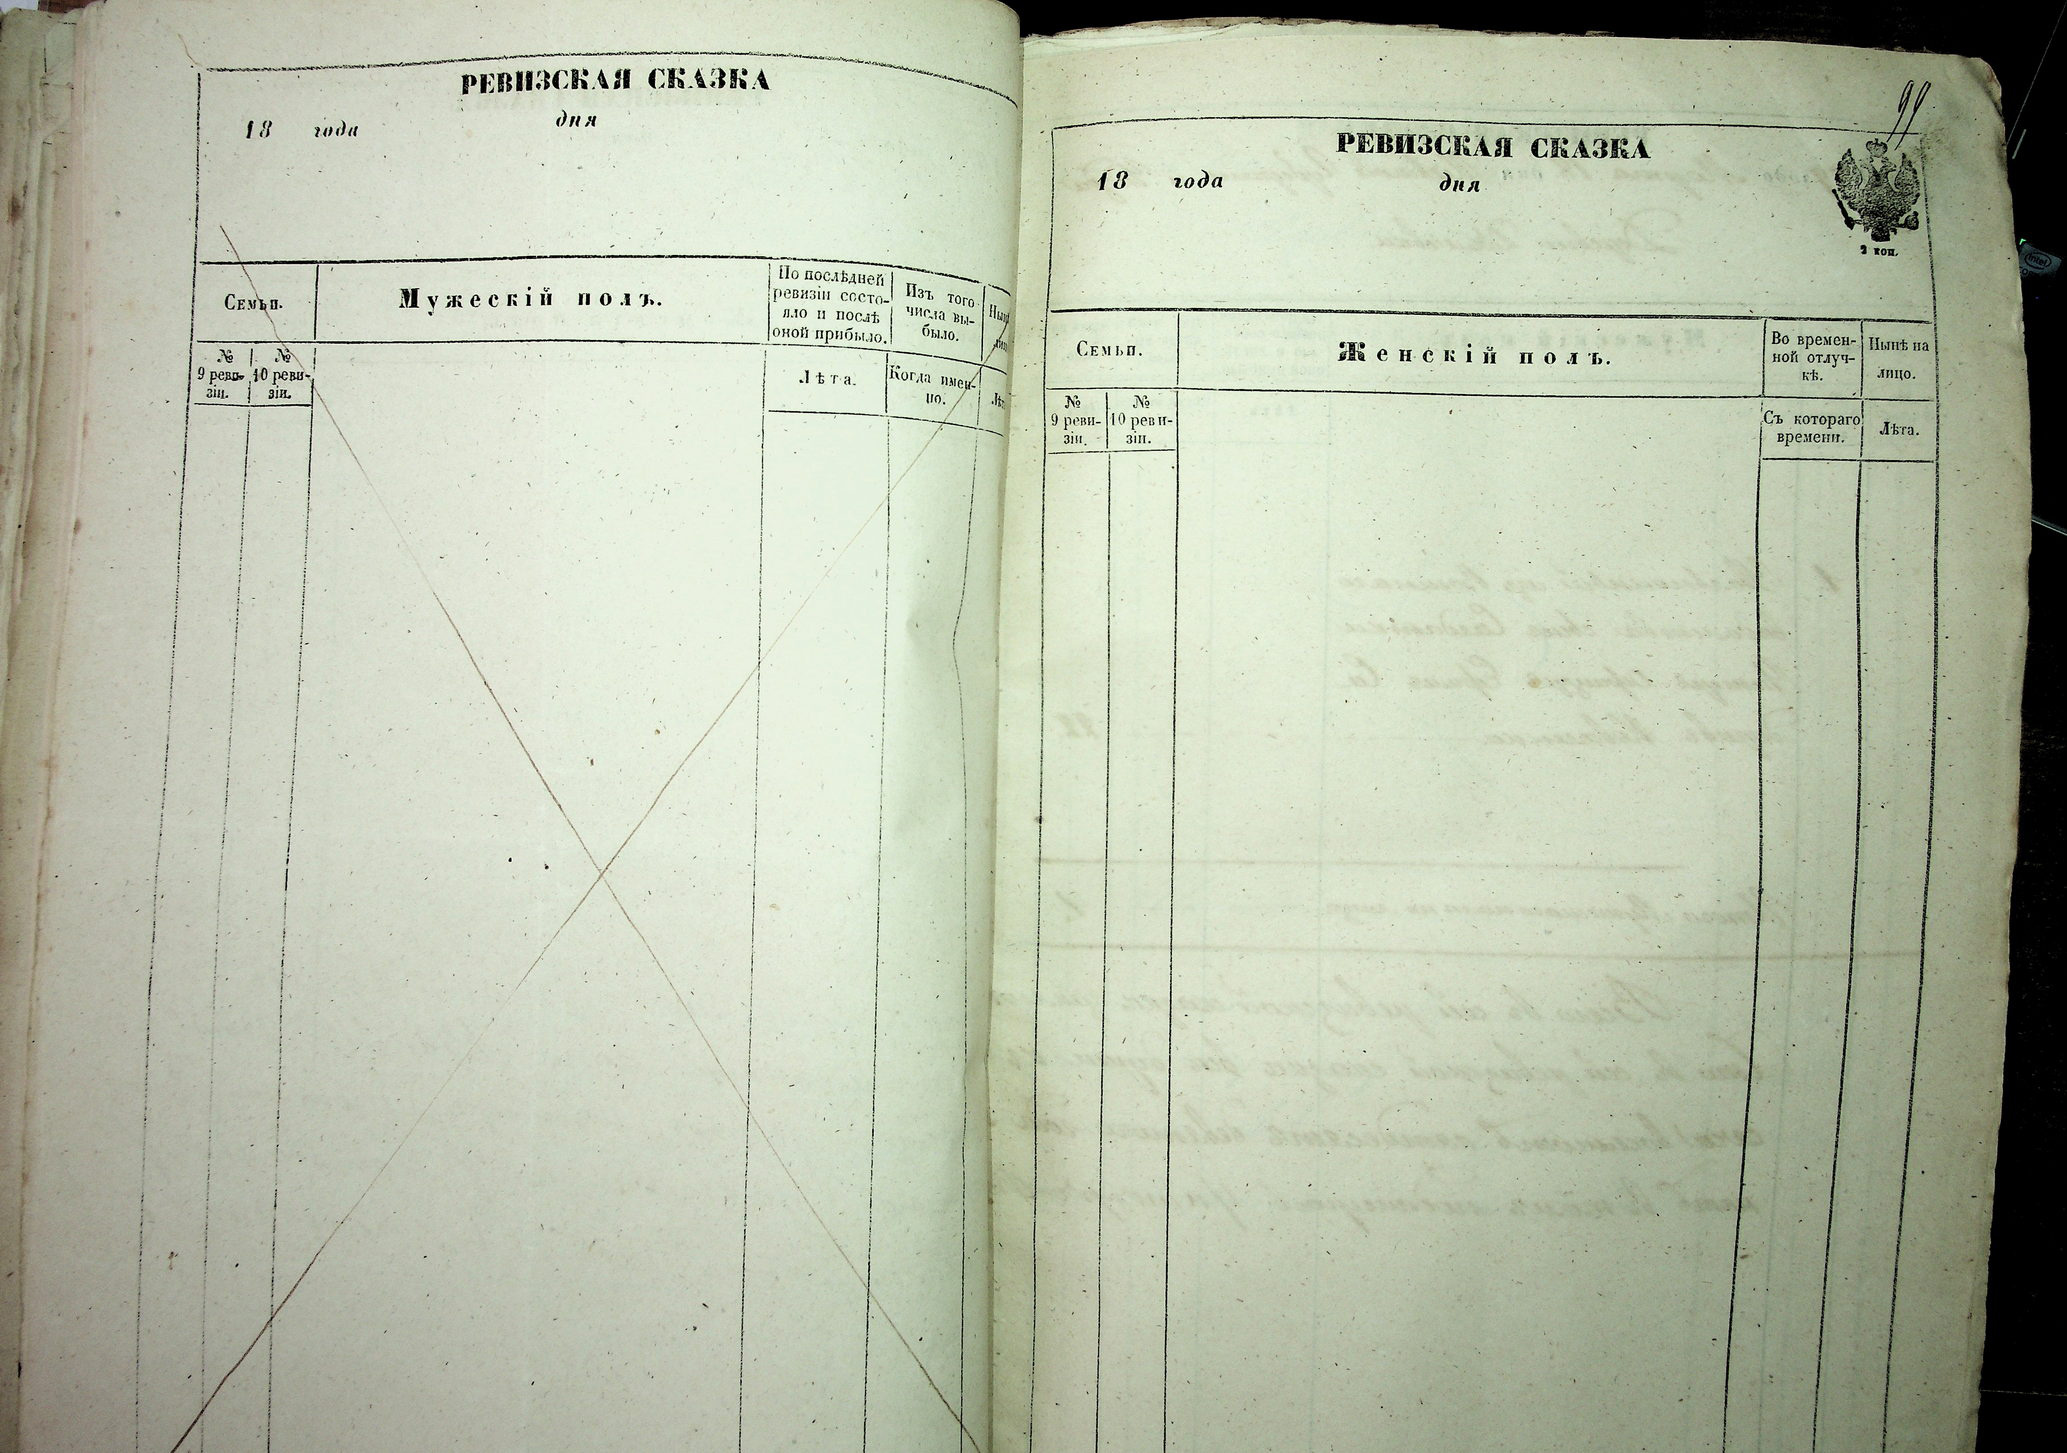 РЕВИЗСКАЯ СКАЗКА
18 года дня
Семьи.
Мужескій полъ.
По послѣдней
ревизіи состо-
яло и послѣ
оной прибыло.
Изъ того
числа вы-
было.
№
9 реви-
зіи.
№
10 реви-
зіи.
Лѣта.
Когда имен-
но.
99
РЕВИЗСКАЯ СКАЗКА
18 года дня
2 коп.
Семьи.
Женскій полъ.
Во времен-
ной отлуч-
кѣ.
Нынѣ на
лицо.
№
9 реви-
зіи.
№
10 реви-
зіи.
Съ котораго
времени.
Лѣта.
intel